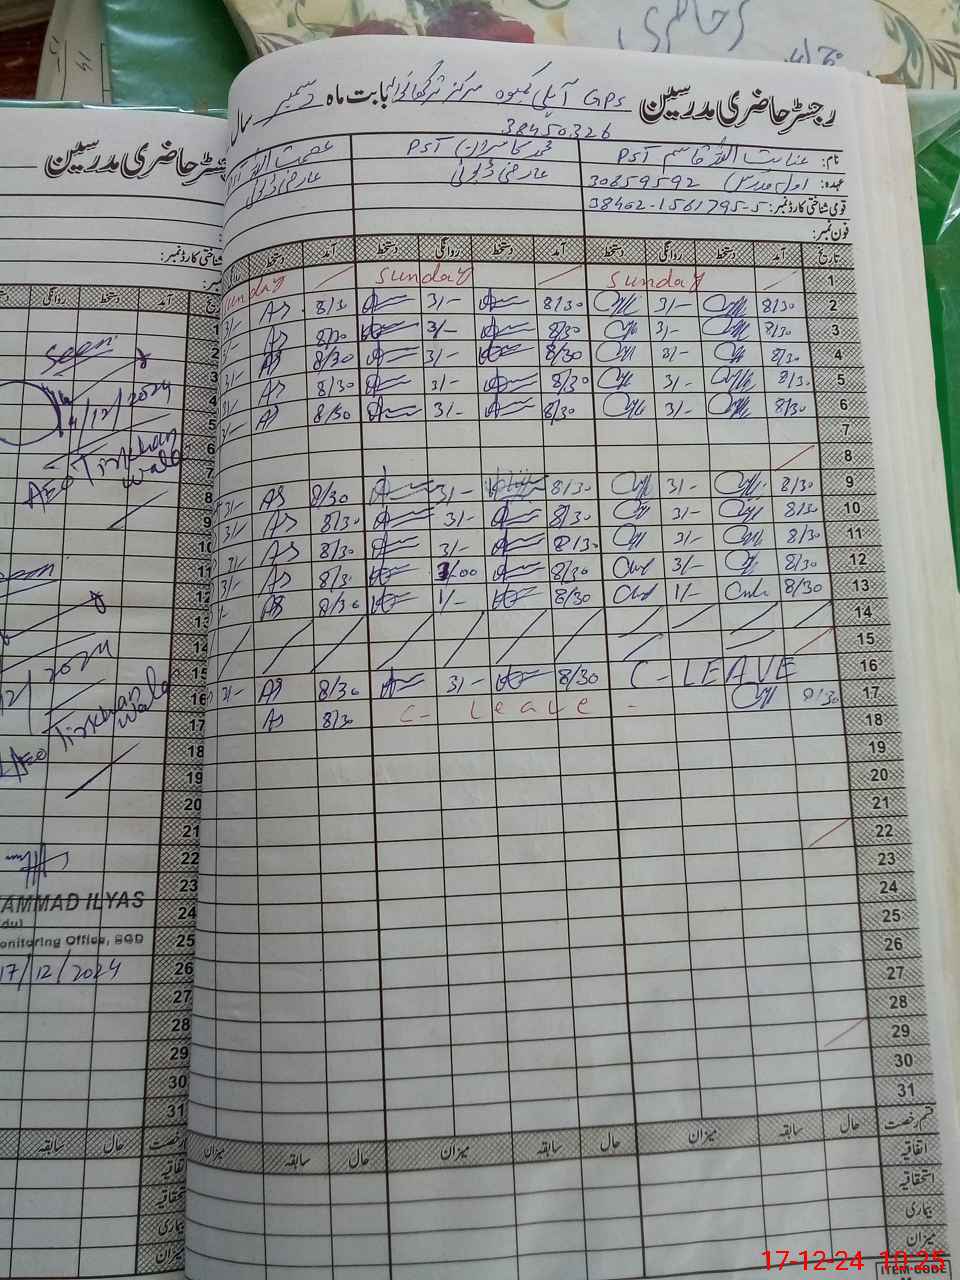 رجسٹر حاضری مدرسین GPS بابت ماہ دسمبر سال
38450326
نام: عنایت اللہ قاسم PST
عہدہ: اول مدرس 30859592
عارضی ڈیوٹی
عارضی ڈیوٹی
قومی شناختی کارڈ نمبر: 38402-1561795-5
فون نمبر:
تاریخ آمد دستخط روانگی دستخط آمد دستخط روانگی دستخط آمد دستخط
1 Sunday Sunday Sunday
2 8/30 3/- 8/30 3/- 8/30 AS 3/-
3 8/30 3/- 8/30 3/- 8/30 AS 3/-
4 8/30 3/- 8/30 3/- 8/30 AS 3/-
5 8/30 3/- 8/30 3/- 8/30 AS 3/-
6 8/30 3/- 8/30 3/- 8/30 AS 3/-
7
8
9 8/30 3/- 8/30 3/- 8/30 AS 3/-
10 8/30 3/- 8/30 3/- 8/30 AS 3/-
11 8/30 3/- 8/30 3/- 8/30 AS 3/-
12 8/30 3/- 8/30 3/00 8/30 AS 3/-
13 8/30 1/- 8/30 1/- 8/30 AS
14
15
16 C-LEAVE 8/30 3/- 8/30 AS 3/-
17 8/30 C-Leave - 8/30 AS
18
19
20
21
22
23
24
25
26
27
28
29
30
31
قسم رخصت حال سابقہ میزان حال سابقہ میزان حال سابقہ میزان
اتفاقیہ
استحقاقیہ
بیماری
میزان
ITEM CODE
حاضری مدرسین
شناختی کارڈ نمبر:
آمد دستخط روانگی دستخط
1
2
3
4
5
6
7
8
9
10
11
12
13
14
15
16
17
18
19
20
21
22
23
24
25
26
27
28
29
30
31
Seen
4/12/2024
AEO Tirkhan
wala
12/2024
AEO Tirkhan
wala
AMMAD ILYAS
(du)
onitoring Office, SGD
17/12/2024
رخصت حال سابقہ
بیماری
میزان
17-12-24 10:25